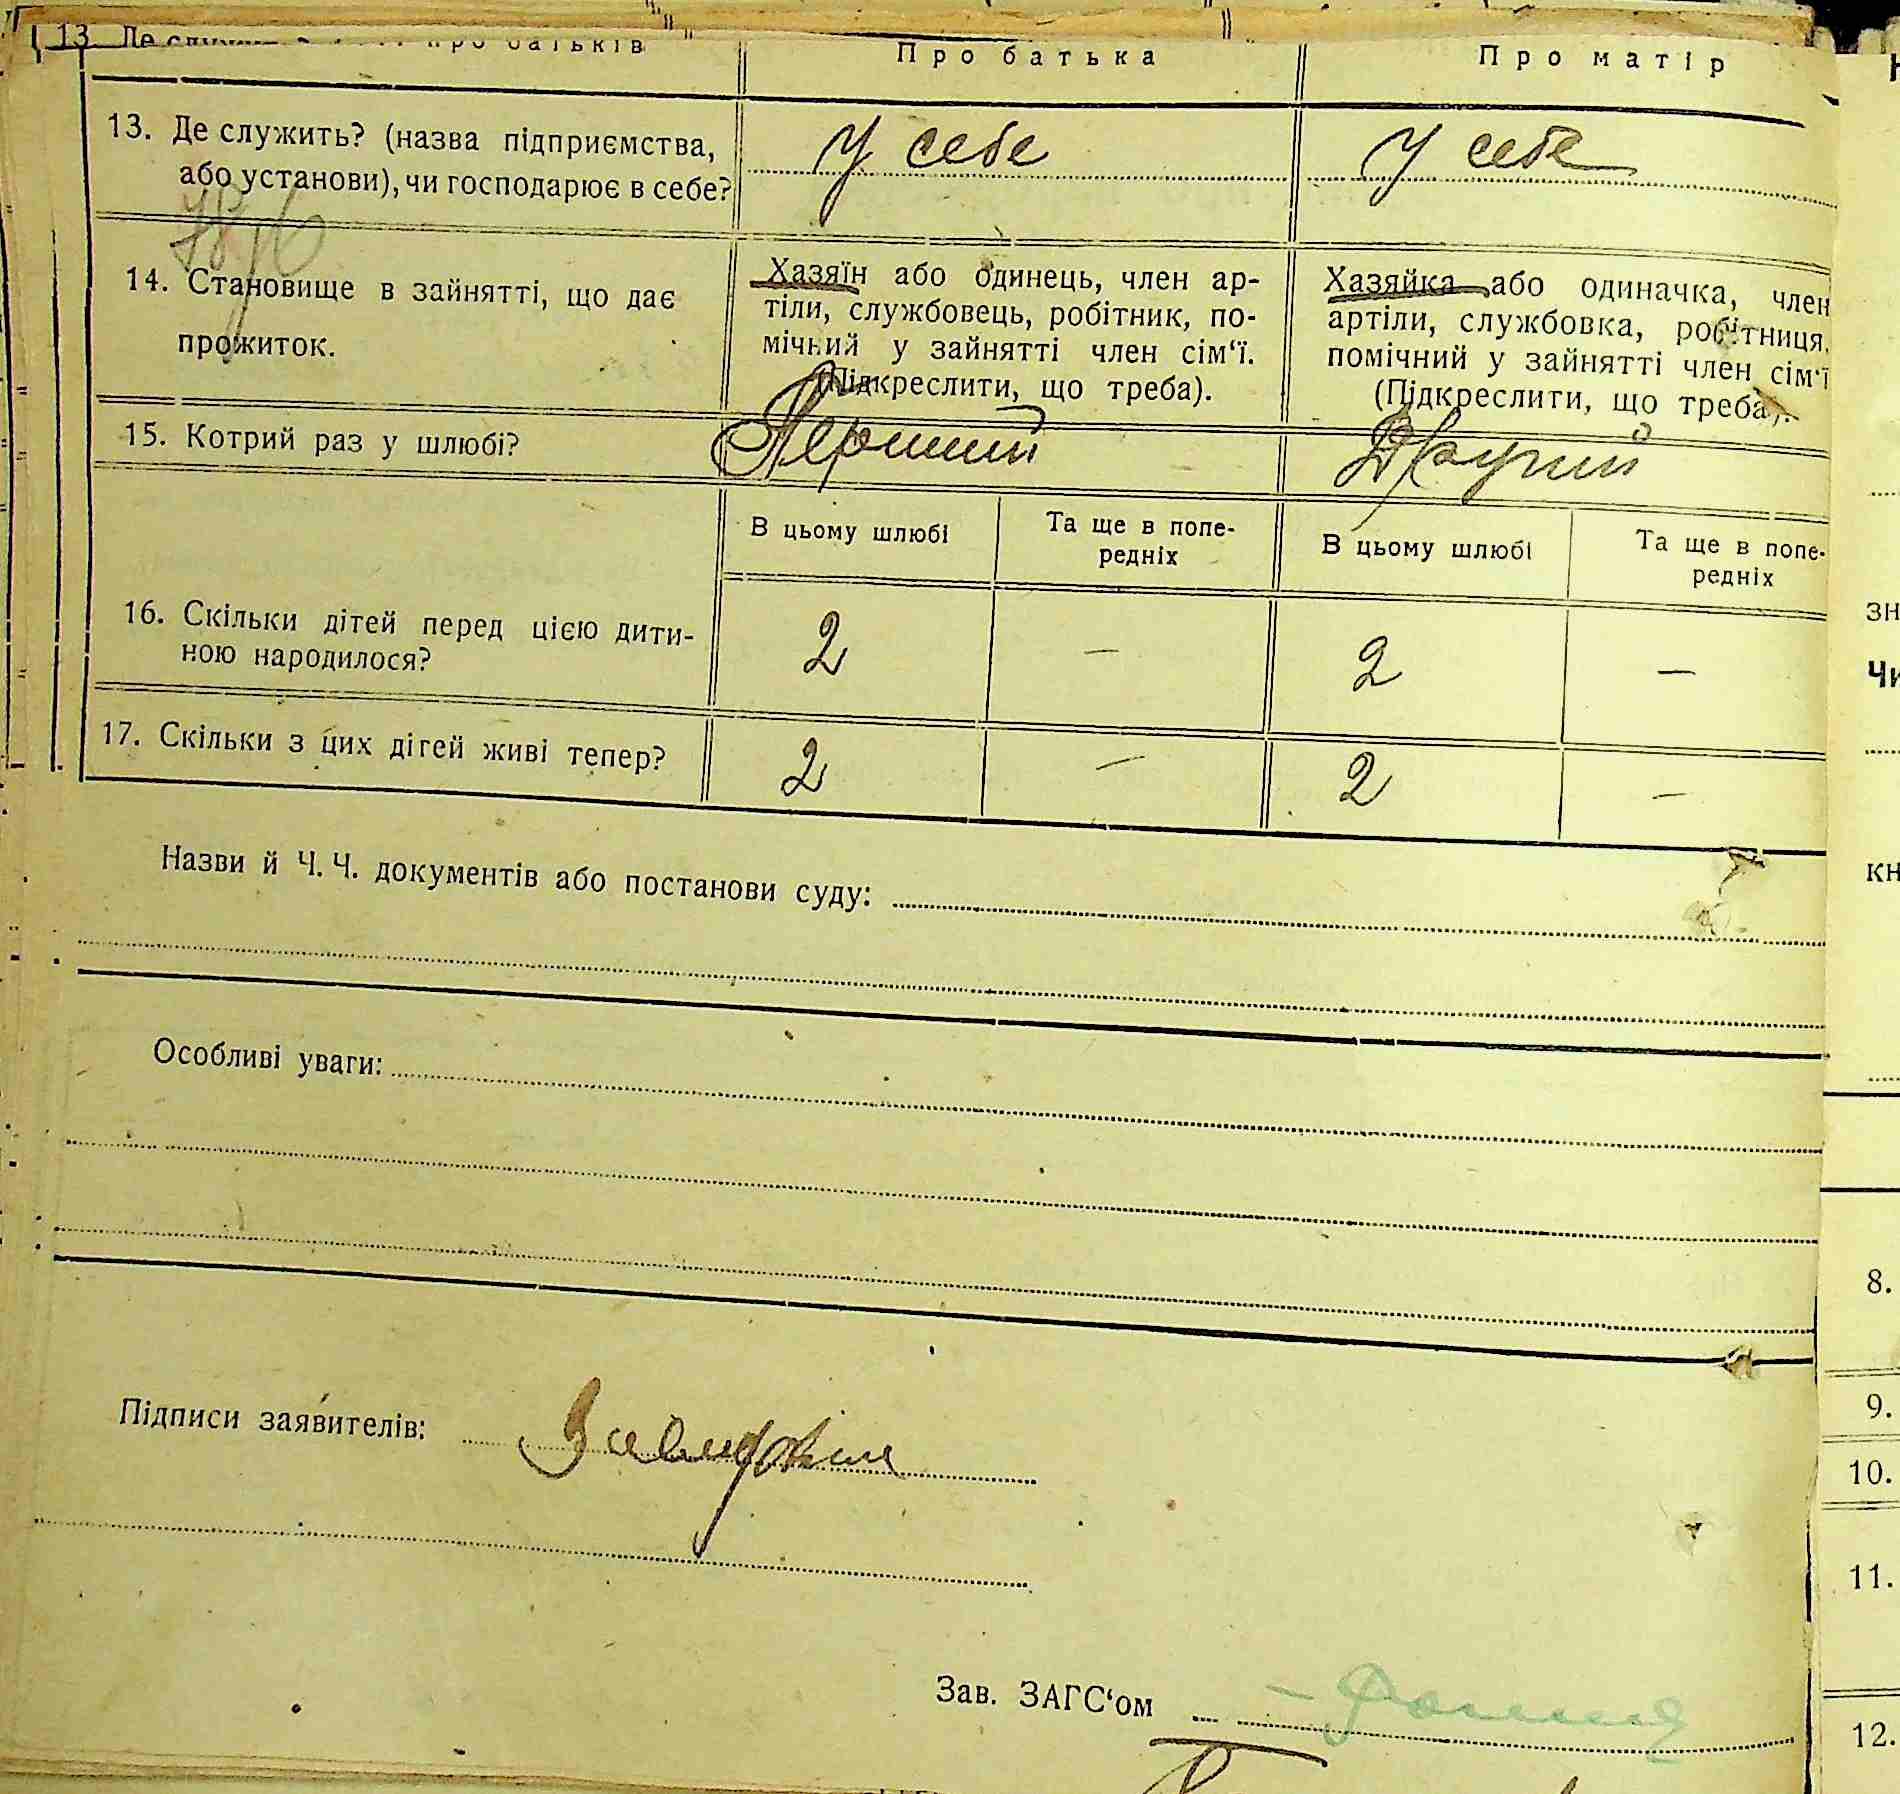 про батьків Про батька Про матір
13. Де служить? (назва підприємства, У себе У себе
або установи), чи господарює в себе?
14. Становище в зайнятті, що дає Хазяїн або одинець, член ар- Хазяйка або одиначка, член
прожиток. тіли, службовець, робітник, по- артіли, службовка, робітниця,
мічний у зайнятті член сім‘ї. помічний у зайнятті член сім‘ї
(Підкреслити, що треба). (Підкреслити, що треба).
15. Котрий раз у шлюбі? Перший Другий
В цьому шлюбі Та ще в попе- В цьому шлюбі Та ще в попе-
редніх редніх
16. Скільки дітей перед цією дити- 2 — 2 —
ною народилося?
17. Скільки з цих дітей живі тепер? 2 — 2 —
Назви й Ч. Ч. документів або постанови суду:
Особливі уваги:
Підписи заявителів:
Зав. ЗАГС‘ом
зн
Чи
кн
8.
9.
10.
11.
12.